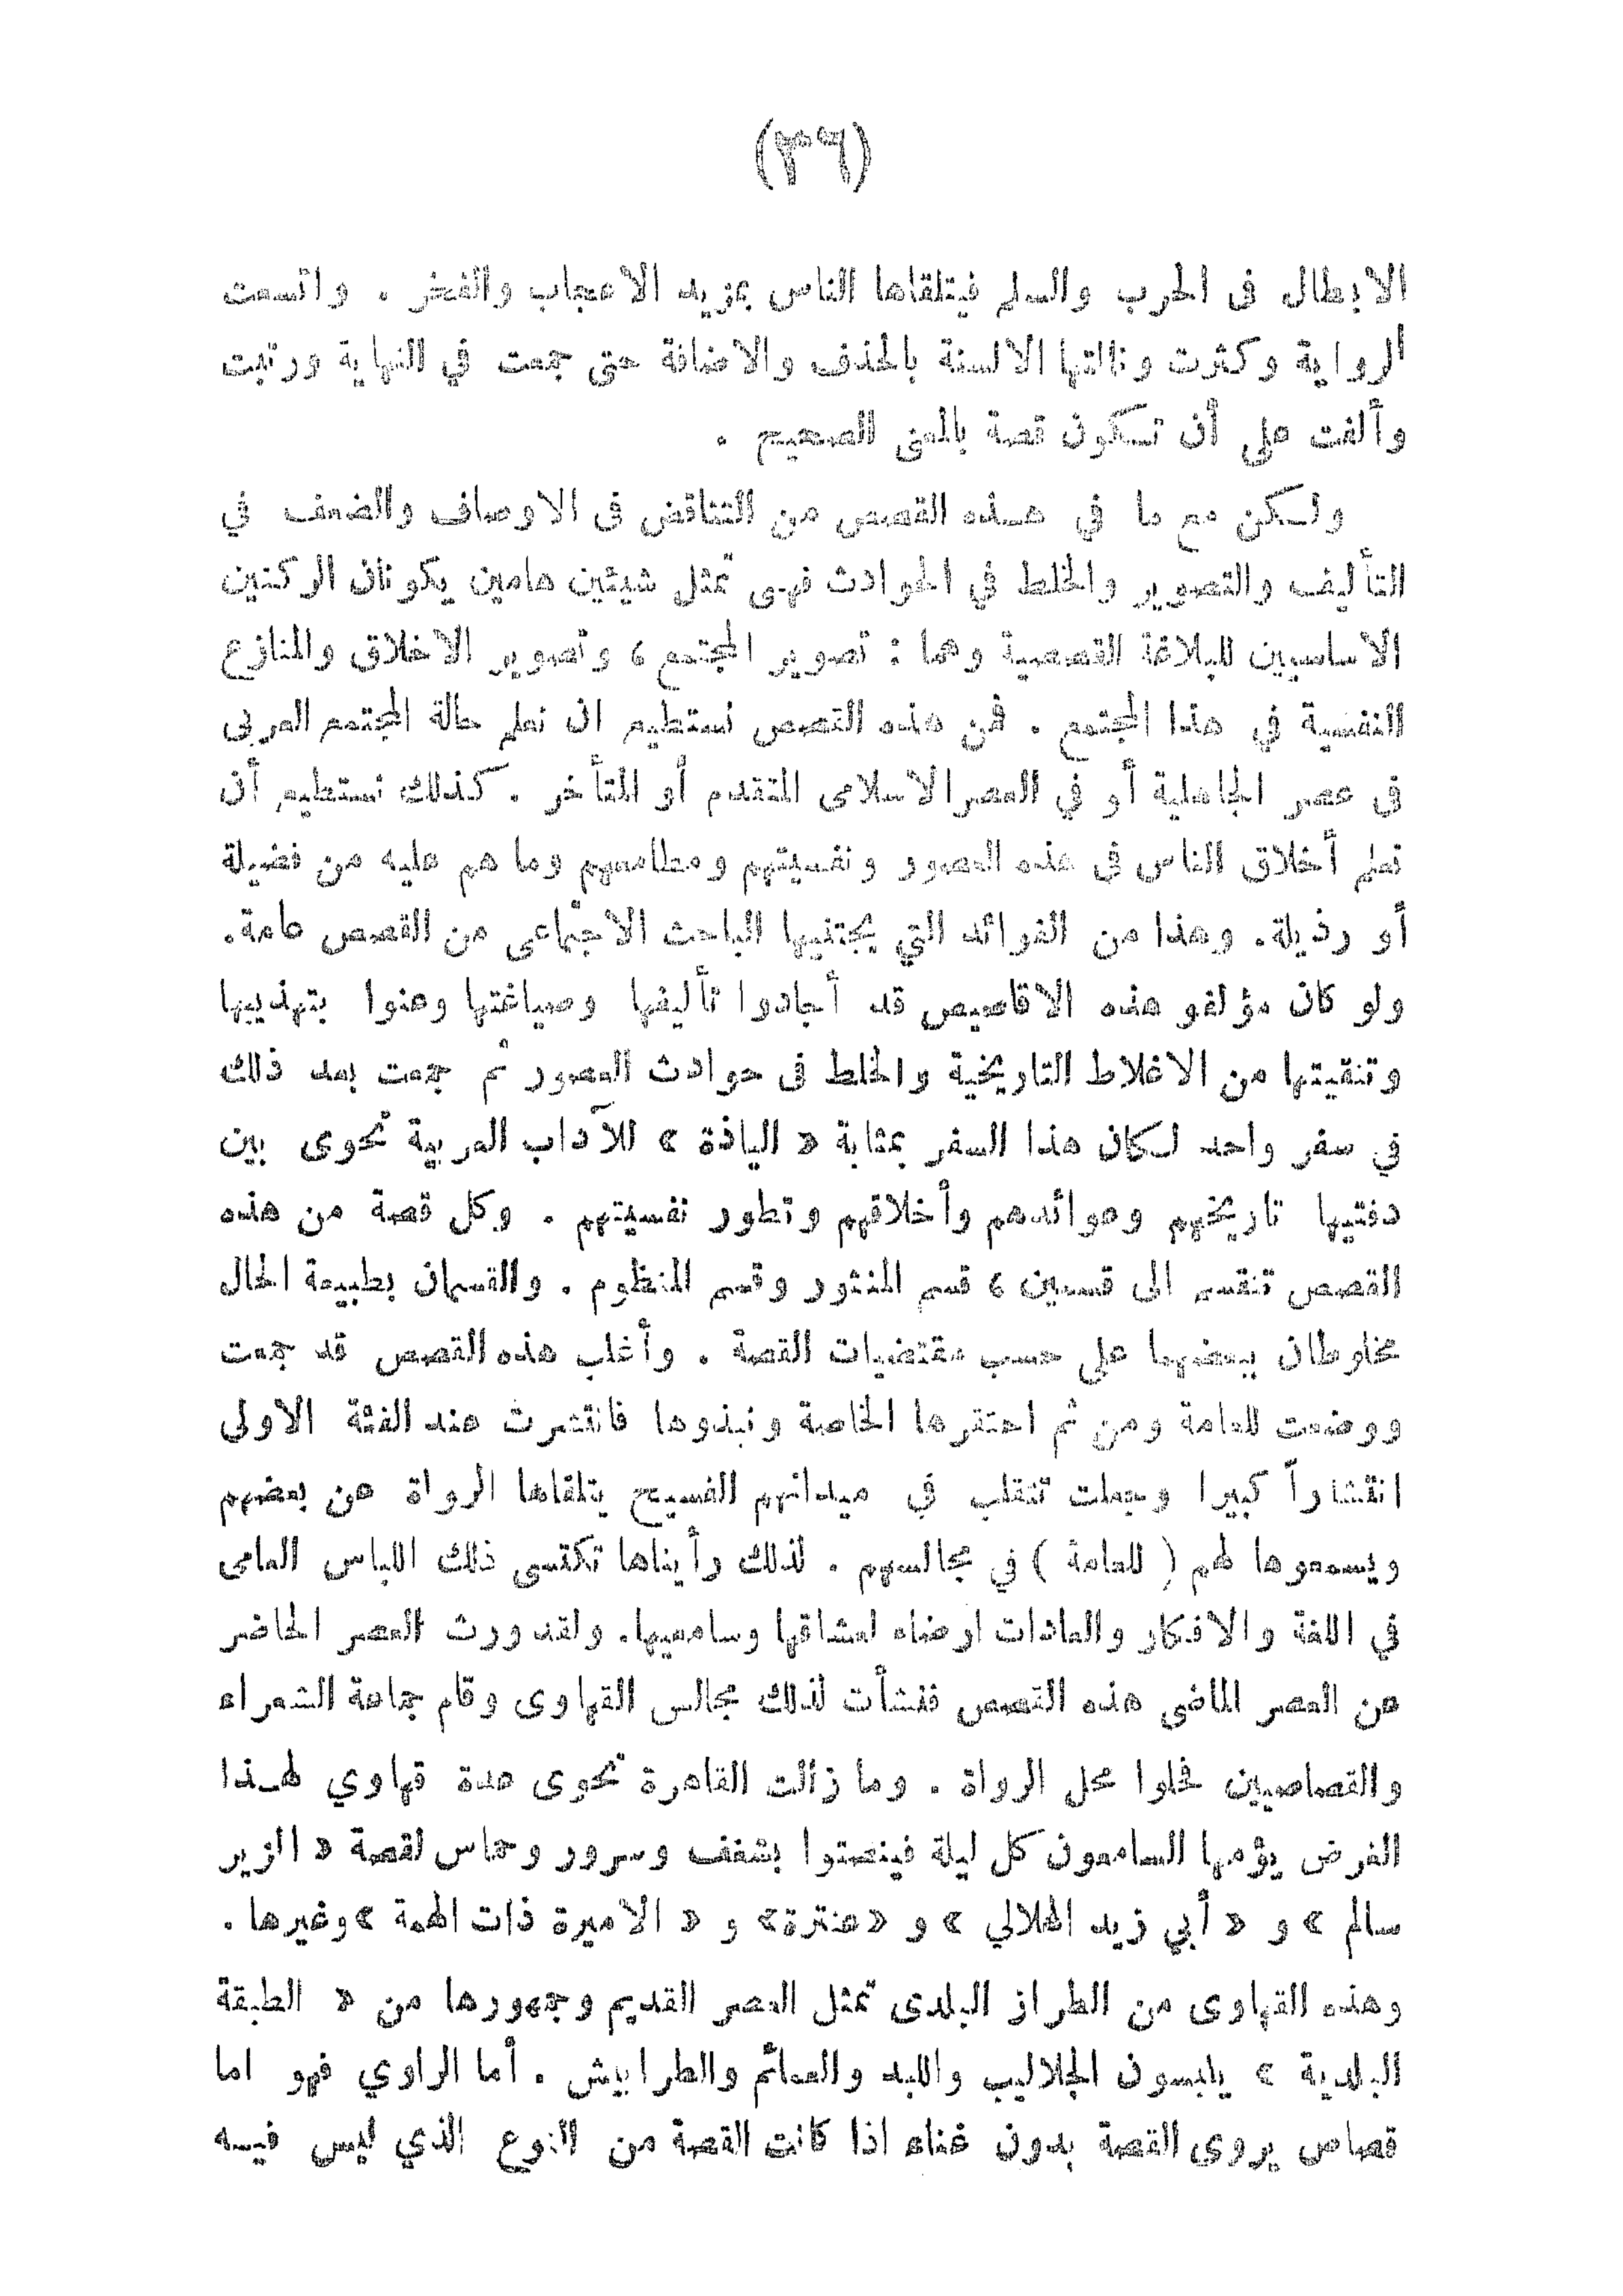 (٣٦)
الابطال فى الحرب والسلم فيتلقاها الناس بمزيد الاعجاب والفخر . واتسعت
الرواية وكثرت ونالتها الالسنة بالحذف والاضافة حتى جمعت في النهاية ورتبت
وألفت على أن تكون قصة بالمعنى الصحيح .
ولكن مع ما في هذه القصص من التناقض فى الاوصاف والضعف في
التأليف والتصوير والخلط في الحوادث فهى تمثل شيئين هامين يكونان الركنين
الاساسيين للبلاغة القصصية وهما : تصوير المجتمع ، وتصوير الاخلاق والمنازع
النفسية في هذا المجتمع . فمن هذه القصص نستطيع ان نعلم حالة المجتمع العربى
فى عصر الجاهلية أو في العصر الاسلامى المتقدم أو المتأخر . كذلك نستطيع أن
نعلم أخلاق الناس فى هذه العصور ونفسيتهم ومطامعهم وما هم عليه من فضيلة
أو رذيلة. وهذا من الفوائد التي يجتنيها الباحث الاجتماعى من القصص عامة.
ولو كان مؤلفو هذه الاقاصيص قد أجادوا تأليفها وصياغتها وعنوا بتهذيبها
وتنقيتها من الاغلاط التاريخية والخلط فى حوادث العصور ثم جمعت بعد ذلك
في سفر واحد لكان هذا السفر بمثابة « الياذة » للآداب العربية تحوى بين
دفتيها تاريخهم وعوائدهم وأخلاقهم وتطور نفسيتهم . وكل قصة من هذه
القصص تنقسم الى قسمين ، قسم المنثور وقسم المنظوم . والقسمان بطبيعة الحال
مخلوطان ببعضهما على حسب مقتضيات القصة . وأغلب هذه القصص قد جمعت
ووضعت للعامة ومن ثم احتقرها الخاصة ونبذوها فانتشرت عند الفئة الاولى
انتشاراً كبيرا وجعلت تتقلب في ميدانهم الفسيح يتلقاها الرواة عن بعضهم
ويسمعوها لهم ( للعامة ) في مجالسهم . لذلك رأيناها تكتسى ذلك اللباس العامى
في اللغة والافكار والعادات ارضاء لعشاقها وسامعيها. ولقد ورث العصر الحاضر
عن العصر الماضى هذه القصص فنشأت لذلك مجالس القهاوى وقام جماعة الشعراء
والقصاصيين فحلوا محل الرواة . وما زالت القاهرة تحوى عدة قهاوي لهذا
الغرض يؤمها السامعون كل ليلة فينصتوا بشغف وسرور وحماس لقصة « الزير
سالم » و « أبي زيد الهلالي » و «عنترة» و « الاميرة ذات الهمة » وغيرها .
وهذه القهاوى من الطراز البلدى تمثل العصر القديم وجمهورها من « الطبقة
البلدية » يلبسون الجلاليب واللبد والعمائم والطرابيش . أما الراوي فهو اما
قصاص يروى القصة بدون غناء اذا كانت القصة من النوع الذي ليس فيه